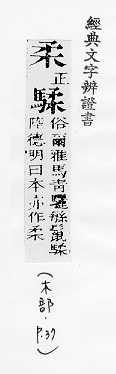 經典文字辨證書
柔正
騥俗爾雅馬青驪緐鬣騥
陸德明曰本亦作柔
(木部.p.37)